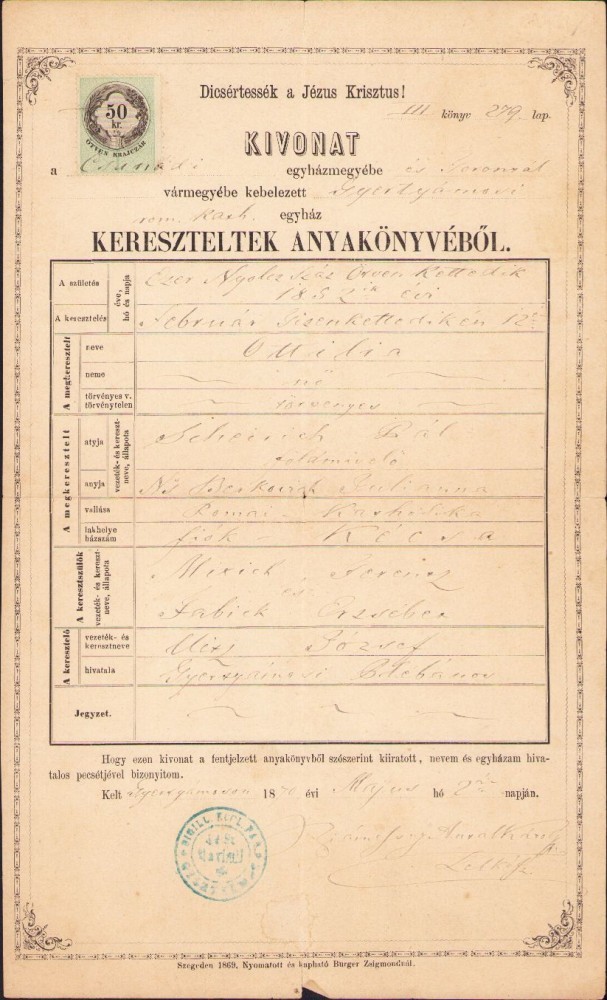 Dicsértessék a Jézus Krisztus!
III könyv 279. lap.
50
kr.
ÖTVEN KRAJCZÁR
KIVONAT
a Csanádi egyházmegyébe és Torontál
vármegyébe kebelezett Gyertyámosi
rom. kath. egyház
KERESZTELTEK ANYAKÖNYVÉBŐL.
A születés
A keresztelés
éve, hó és napja
Ezer Nyolcz Száz Ötven Kettedik
1852ik évi
Február Tizenkettedikén 12
A megkeresztelt
neve
Ottilia
neme
nő
törvényes v. törvénytelen
törvényes
A megkeresztelt
atyja
vezeték- és kereszt-neve, állapota
Pál
földmivelő
anyja
Julianna
vallása
Romai Katholika
lakhelye házszám
fiók Kécsa
A keresztszülők
vezeték- és kereszt-neve, állapota
és
A keresztelő
vezeték- és keresztneve
József
hivatala
Gyertyámosi Plébános
Jegyzet.
Hogy ezen kivonat a fentjelzett anyakönyvből szószerint kiiratott, nevem és egyházam hiva-
talos pecsétjével bizonyitom.
Kelt Gyertyámoson 18 évi Május hó napján.
SIGILL. ECCL. PAR.
Szegeden 1869. Nyomatott és kapható Burger Zsigmondnál.